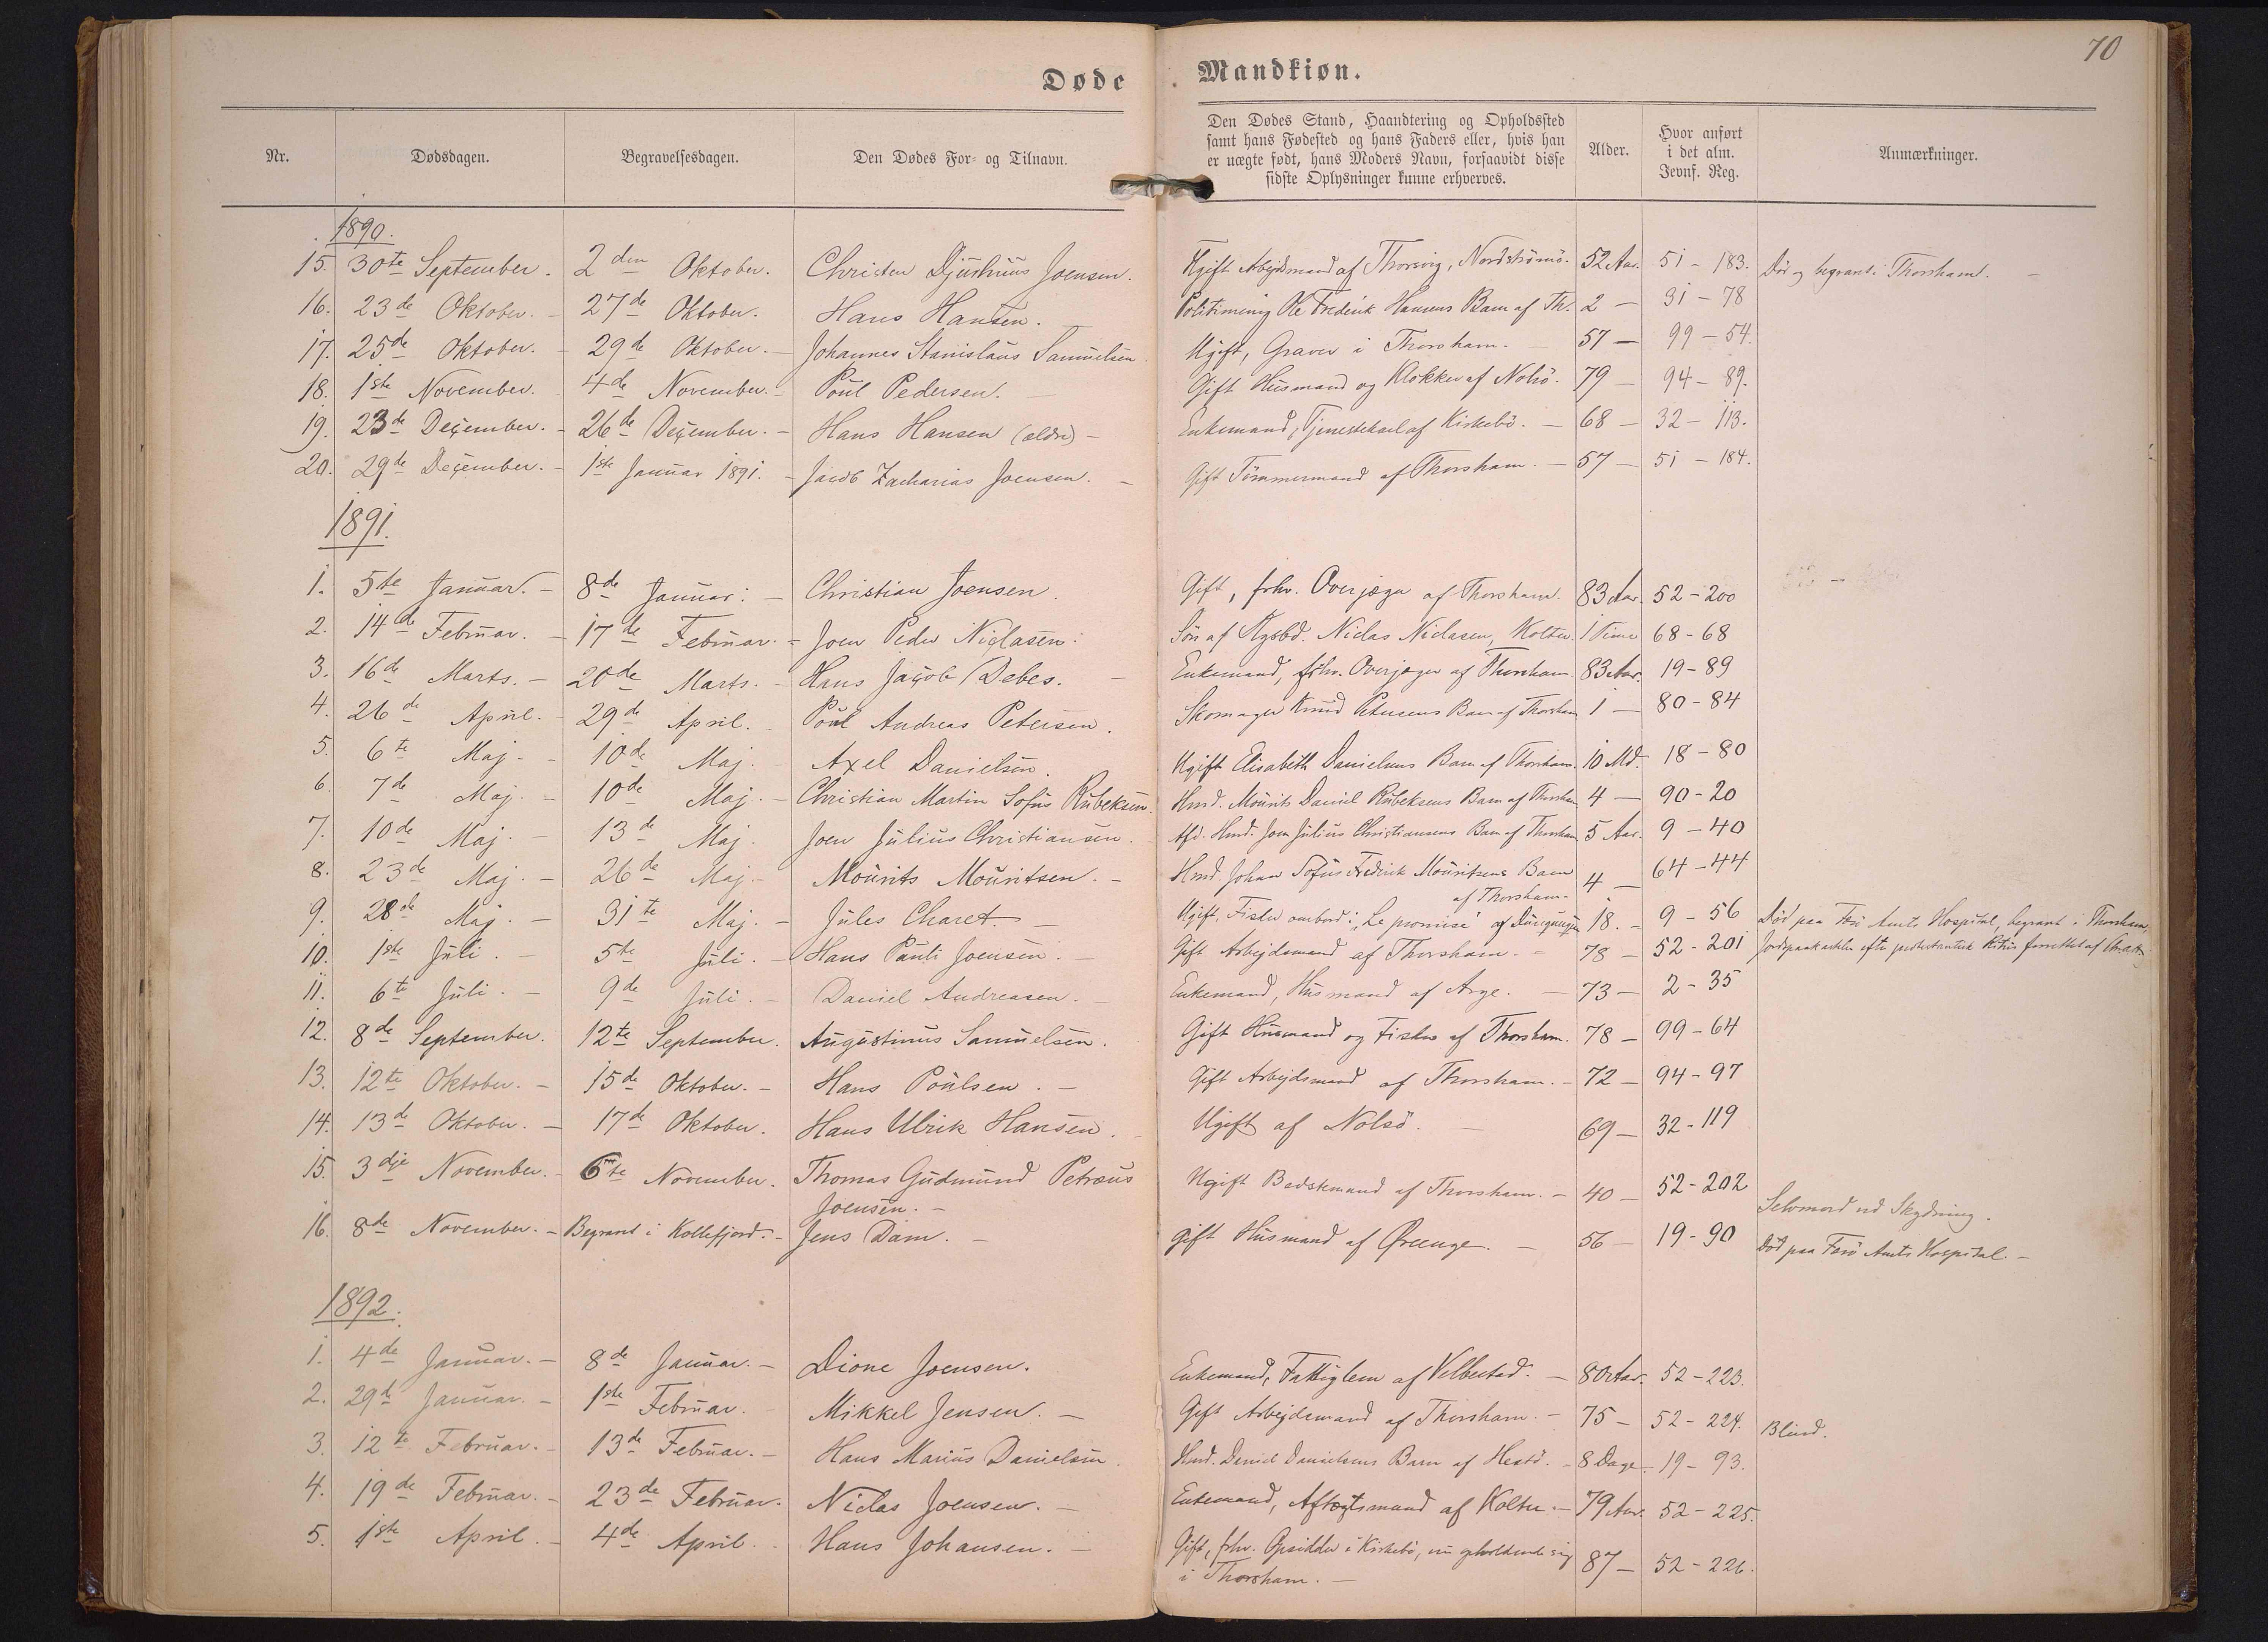 70
Døde Mandkiøn.
Nr. Dødsdagen. Begravelsesdagen. Den Dødes For- og Tilnavn. Den Dødes Stand, Haandtering og Opholdssted samt hans Fødested og hans Faders eller, hvis han er uægte født, hans Moders Navn, forsaavidt disse sidste Oplysninger kunne erhverves. Alder. Hvor anført i det alm. Jevnf. Reg. Anmærkninger.
1890.
15. 30te September. 2den Oktober. Christen Djurhuus Joensen. Ugift Arbejdsmand af Thorsvig, Nordströmö. 52 Aar. 51 - 183. Død og begravet i Thorshavn. -
16. 23de Oktober. - 27de Oktober. Hans Hansen. Ole Frederik Hansens Barn af Th. 2 - 31 - 78
17. 25de Oktober. - 29de Oktober. - Johannes Stanislaus Samuelsen. Ugift, Graver i Thorshavn. - 57 - 99 - 54.
18. 1ste November. 4de November. - Poul Pedersen. Gift Husmand og Klokker af Nolsö. 79 - 94 - 89.
19. 23de December. - 26de December. - Hans Hansen (ældre) - Enkemand, Tjenestekarl af Kirkebö. - 68 - 32 - 113.
20. 29de December. - 1ste Januar 1891. - Jacob Zacharias Joensen. - Gift Tömmermand af Thorshavn. - 57 - 51 - 184.
1891.
1. 5te Januar. - 8de Januar. - Christian Joensen. Gift, fhv. Overjæger af Thorshavn. 83 Aar. 52 - 200
2. 14de Februar. - 17de Februar. - Joen Peder Niclasen. Sön af Niclas Niclasen, Kolter. 1 Time 68 - 68
3. 16de Marts. - 20de Marts. - Hans Jacob Debes. - Enkemand, fhv. Overjæger af Thorshavn 83 Aar. 19 - 89
4. 26de April. - 29de April. Poul Andreas Petersen. Skomager Knud Petersens Barn af Thorshavn 1 - 80 - 84
5. 6te Maj. - 10de Maj. - Axel Danielsen. Ugift Elisabeth Danielsens Barn af Thorshavn. 10 Md. 18 - 80
6. 7de Maj. - 10de Maj. - Christian Martin Sofus Rubeksen. Hmd. Mourits Daniel Rubeksens Barn af Thorshavn 4 - 90 - 20
7. 10de Maj. - 13de Maj. Joen Julius Christiansen. Afd. Hmd. Joen Julius Christiansens Barn af Thorshavn 5 Aar. 9 - 40
8. 23de Maj. - 26de Maj - Mourits Mouritsen. - Hmd. Johan Sofus Fredrik Mouritsens Barn af Thorshavn. 4 - 64 - 44
9. 28de Maj. - 31te Maj. - Jules Charet. - Ugift, Fisker ombord i "Le promise" af 18. - 9 - 56 Død paa Færø Amts Hospital, begravet i Thorshavn,
10. 1ste Juli. - 5te Juli. - Hans Pauli Joensen. - Gift Arbejdsmand af Thorshavn. - 78 - 52 - 201 Jordspaakastelse efter protestantisk Ritus forrettet af
11. 6te Juli. - 9de Juli. - Daniel Andreasen. - Enkemand, Husmand af Arge. - 73 - 2 - 35
12. 8de September. 12te September. Augustinus Samuelsen. Gift Husmand og Fisker af Thorshavn. 78 - 99 - 64
13. 12te Oktober. - 15de Oktober. - Hans Poulsen. - Gift Arbejdsmand af Thorshavn. - 72 - 94 - 97
14. 13de Oktober. - 17de Oktober. Hans Ulrik Hansen. Ugift af Nolsö. - 69 - 32 - 119
15. 3dje November. - 6te November. Thomas Gudmund Petræus Joensen. - Ugift Bedstemand af Thorshavn. - 40 - 52 - 202 Selvmord ved Skydning.
16. 8de November. - Begravet i Kollefjord. - Jens Dam. - Gift Husmand af Øreenge. - 56 - 19 - 90 Død paa Færö Amts Hospital. -
1892.
1. 4de Januar. - 8de Januar. - Dione Joensen. Enkemand, Fattiglem af Velbestad. - 80 Aar. 52 - 223.
2. 29de Januar. - 1ste Februar. Mikkel Jensen. - Gift Arbejdsmand af Thorshavn. - 75 - 52 - 224. Blind.
3. 12te Februar. - 13de Februar. - Hans Marius Danielsen. Hmd. Daniel Danielsens Barn af Hestö. - 8 Dage. 19 - 93.
4. 19de Februar. - 23de Februar. Niclas Joensen. - Enkemand, Aftægtsmand af Kolter. - 79 Aar. 52 - 225.
5. 1ste April. - 4de April. - Hans Johansen. - Gift, fhv. Opsidder i Kirkebö, nu opholdende sig i Thorshavn. - 87 - 52 - 226.